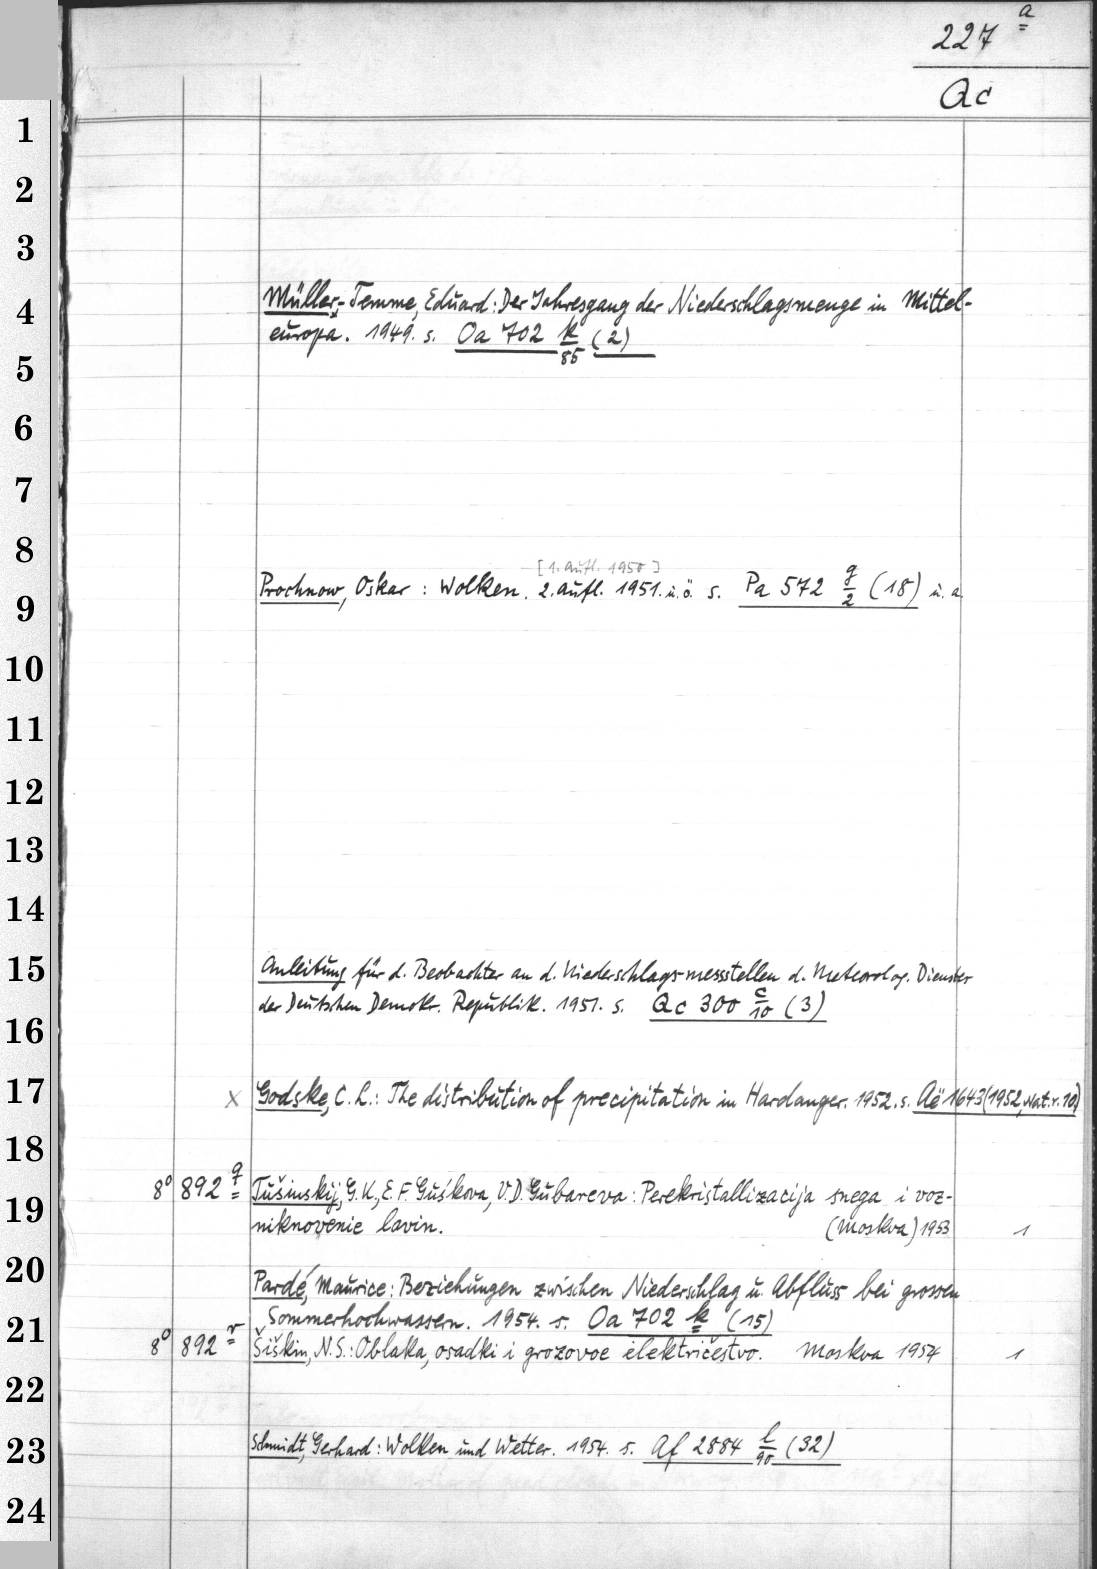 227 a
Qc
1
2
3
4
Müller-Temme, Eduard: Der Jahresgang der Niederschlagsmenge in Mittel-
europa. 1949. s. Oa 702 k/85 (2)
5
6
7
8
[1. Aufl. 1950]
Prochnow, Oskar: Wolken. 2. Aufl. 1951. u. ö. s. Pa 572 g/2 (18) u. a.
9
10
11
12
13
14
15
Anleitung für d. Beobachter an d. Niederschlagsmessstellen d. Meteorolog. Dienstes
der Deutschen Demokr. Republik. 1951. s. Qc 300 c/10 (3)
16
17
x Godske, C. L.: The distribution of precipitation in Hardanger. 1952. s. Aë 1643 (1952, Nat. r. 10)
18
8° 892 q Tušinskij, G. K., E. F. Guśkova, V. D. Gubareva: Perekristallizacija snega i voz-
19
niknovenie lavin. (Moskva) 1953 1
20
Pardé, Maurice: Beziehungen zwischen Niederschlag u. Abfluss bei grossen
Sommerhochwassern. 1954. s. Oa 702 k (15)
21
8° 892 r Šiškin, N. S.: Oblaka, osadki i grozovoe električestvo. Moskva 1954 1
22
23
Schmidt, Gerhard: Wolken und Wetter. 1954. s. Af 2884 l/90 (32)
24